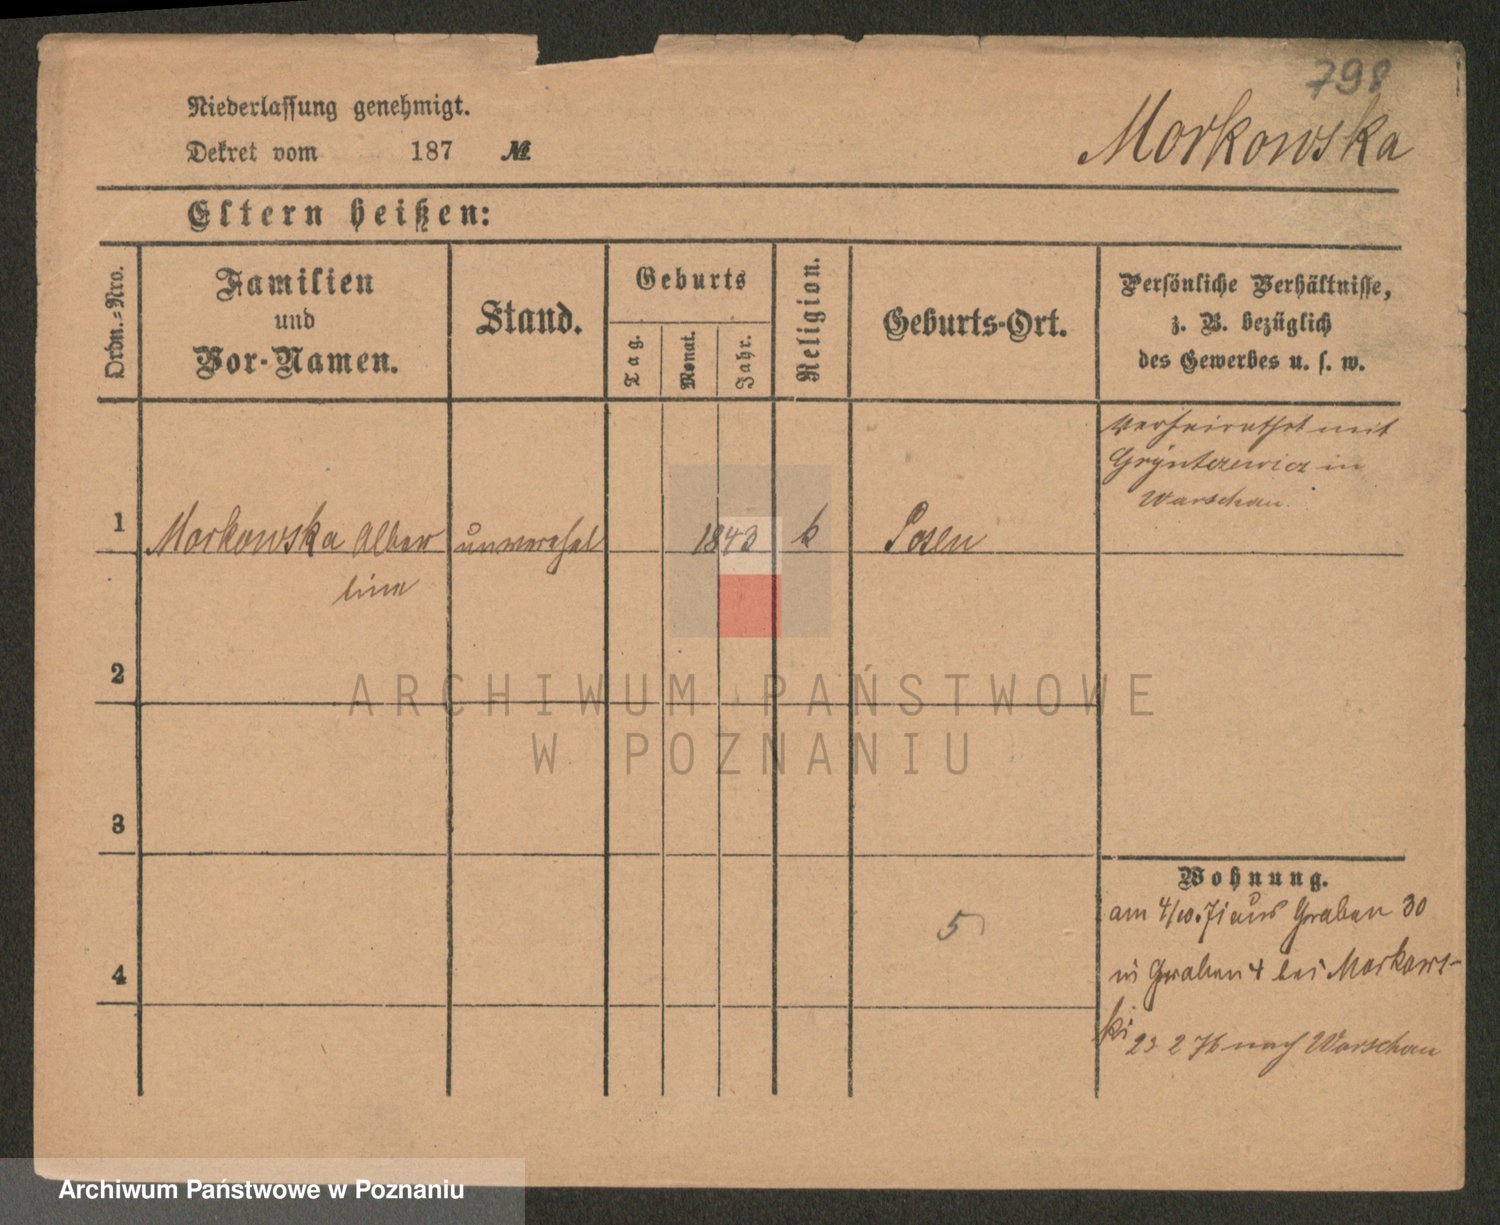 798
Niederlassung genehmigt.
Dekret vom 187 №
Morkowska
Eltern heißen:
Ordn.-Nro.
Familien
und
Vor-Namen.
Stand.
Geburts
Tag.
Monat.
Jahr.
Religion.
Geburts-Ort.
Persönliche Verhältnisse,
z. B. bezüglich
des Gewerbes u. s. w.
verheirathet mit
in
Warschau.
1 Morkowska Alber unverehel 1843 k Posen
tine
2
ARCHIWUM PAŃSTWOWE
W POZNANIU
3
Wohnung.
am 4/10.71 aus Graben 30
5
in Graben 4 bei Morkows-
4
ki
23 2 76 nach Warschau
Archiwum Państwowe w Poznaniu